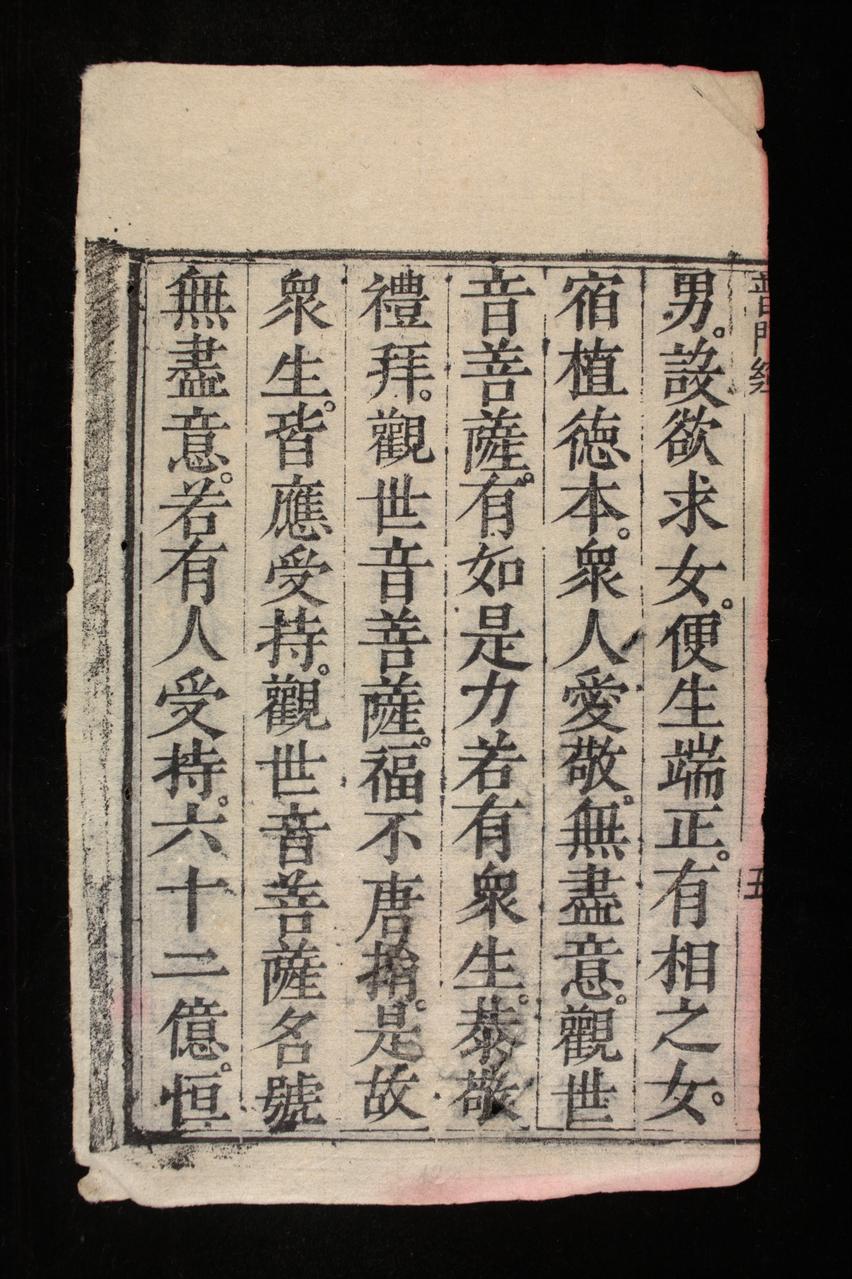 普門經
五
男。設欲求女。便生端正。有相之女。
宿植德本。衆人愛敬。無盡意。觀世
音菩薩。有如是力若有衆生。恭敬
禮拜。觀世音菩薩。福不唐捐。是故
衆生。皆應受持。觀世音菩薩名號
無盡意。若有人受持。六十二億。恒